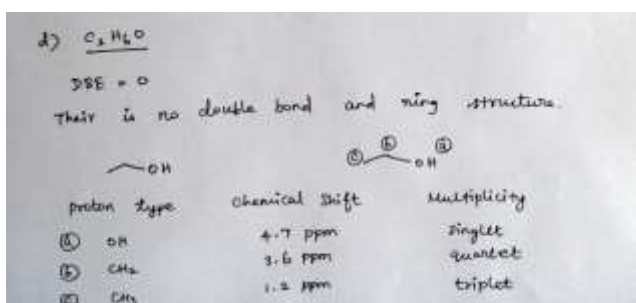 d) C₂H₆O
DBE = 0
Their is no double bond and ring structure.
ⓒ ⓑ OH ⓐ
OH
proton type Chemical Shift Multiplicity
ⓐ OH 4.7 ppm singlet
ⓑ CH₂ 3.6 ppm quartet
ⓒ CH₃ 1.2 ppm triplet